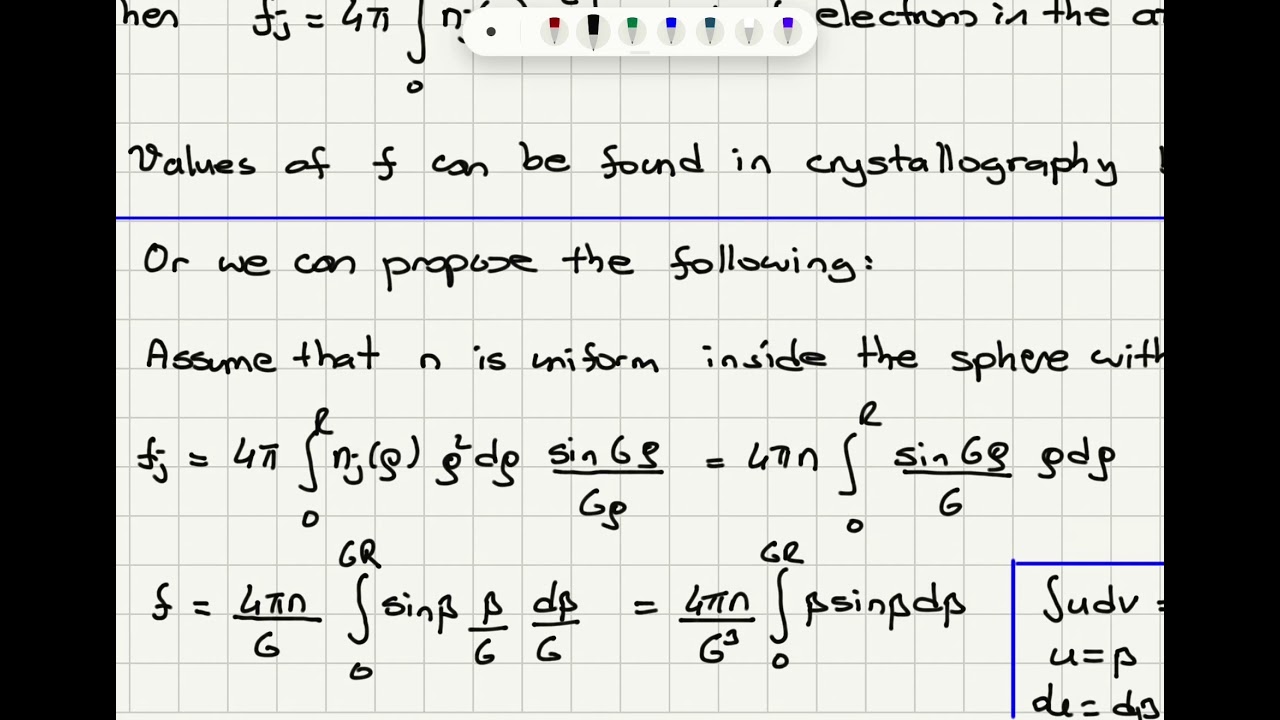 hen fj = 4π ∫ n electrons in the
0
Values of f can be found in crystallography
Or we can propose the following:
Assume that n is uniform inside the sphere with
fj = 4π ∫₀ᴿ nj(ρ) ρ²dρ sin Gρ / Gρ = 4πn ∫₀ᴿ sin Gρ / G ρdρ
f = 4πn / G ∫₀ᴳᴿ sinβ β/G dβ/G = 4πn / G³ ∫₀ᴳᴿ βsinβdβ
∫udv =
u=β
du = dβ